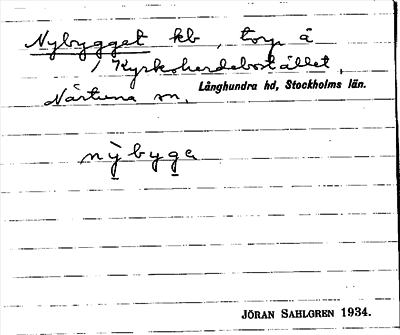 Nybygget kb, torp å
Kyrkoherdebostället,
Närtuna sn, Långhundra hd, Stockholms län.
nỳbyga
JÖRAN SAHLGREN 1934.